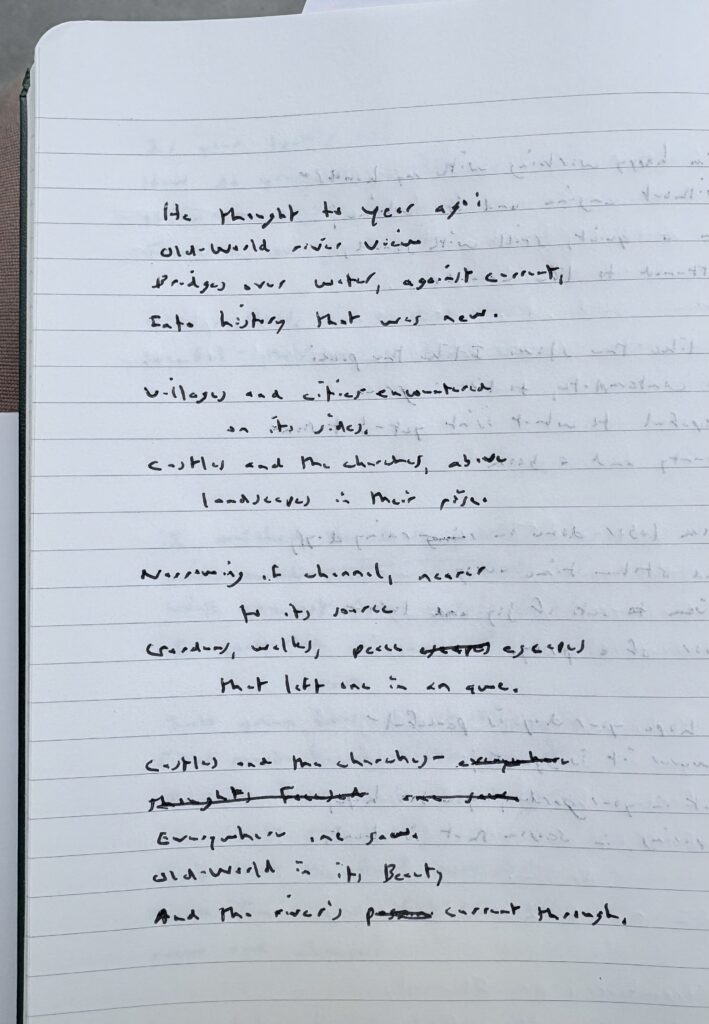 He thought to year ago
Old-World river view
Bridges over water, against current,
Into history that was new.
Villages and cities encountered
on its sides.
Castles and the churches, above
landscapes in their rise.
Narrowing of channel, nearer
to its source
Gardens, walks, peace escapes escapes
that left one in an awe.
Castles and the churches- everywhere
thoughts Focused one saw
Everywhere one saw.
Old-World in its Beauty
And the river's current through.